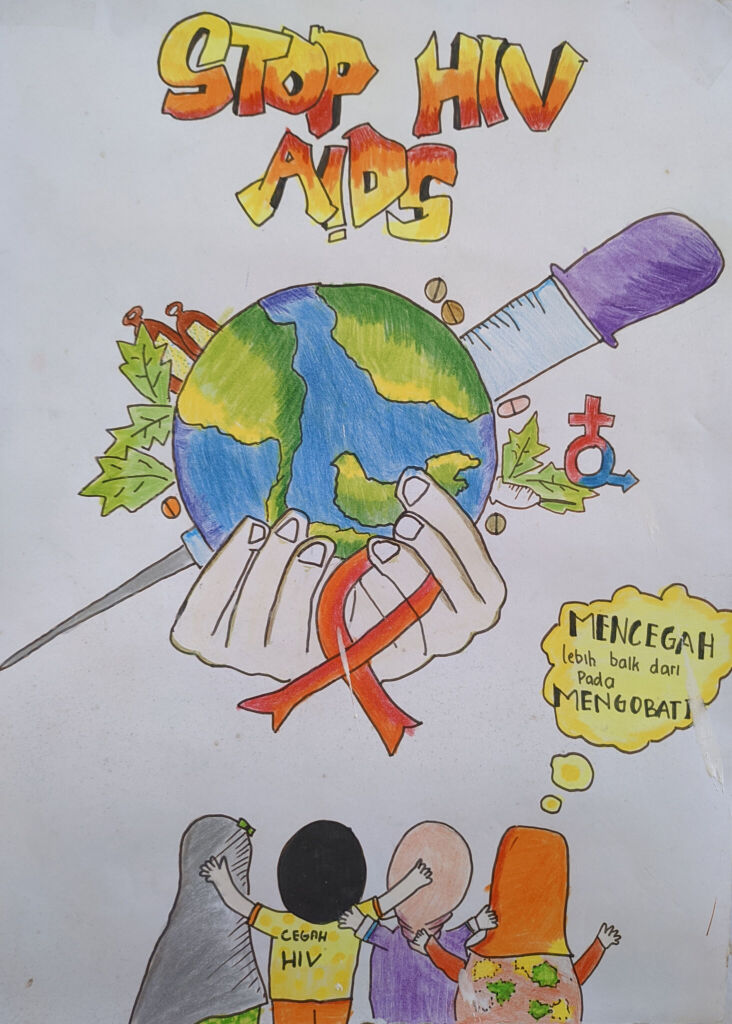 STOP HIV
AIDS
MENCEGAH
lebih baik dari
Pada
MENGOBATI
CEGAH
HIV